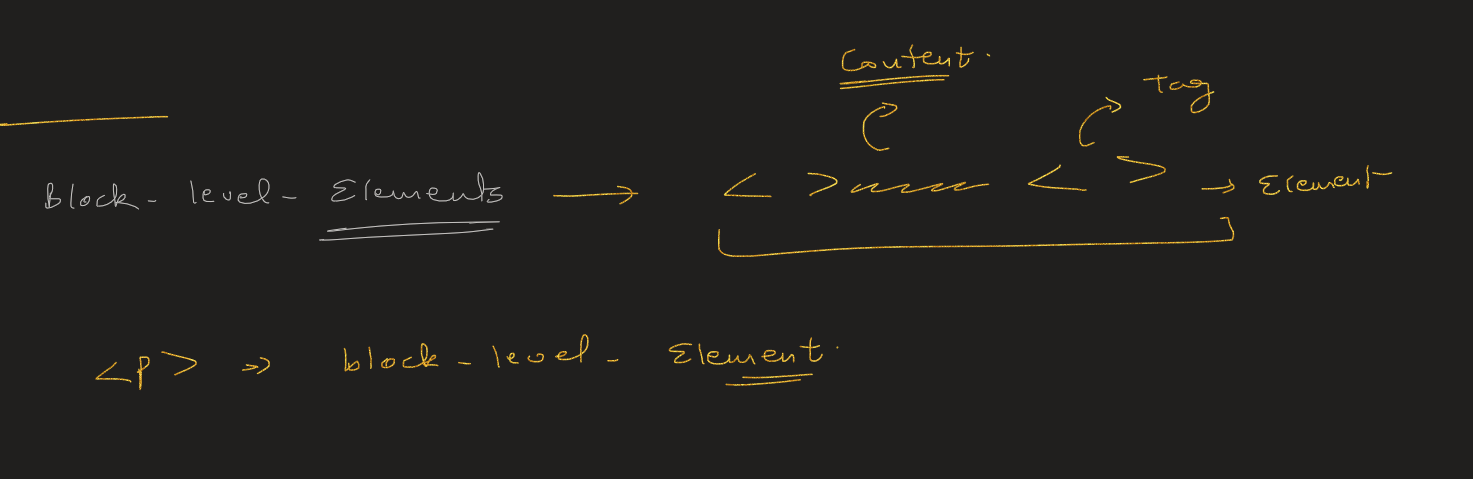 Content.
Tag
Block-level-Elements → < > < > → Element
<p> => block-level-Element.